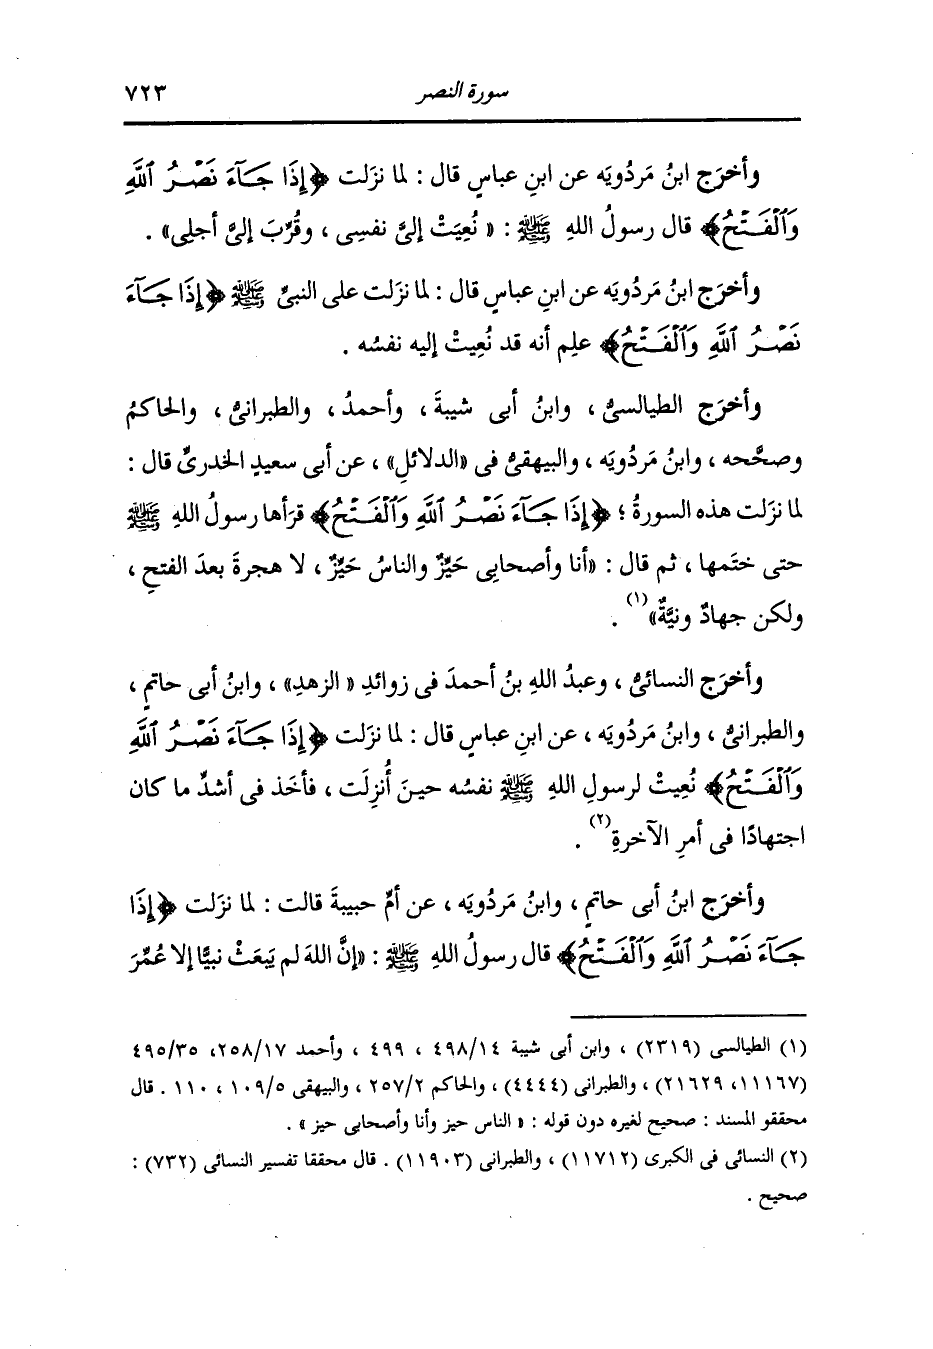 سورة النصر ٧٢٣
وأخرَج ابنُ مَردُويَه عن ابنِ عباسٍ قال : لما نزَلت ﴿إِذَا جَآءَ نَصْرُ ٱللَّهِ
وَٱلْفَتْحُ﴾ قال رسولُ اللهِ ﷺ : « نُعِيَتْ إلىَّ نفسِى ، وقُرِّبَ إلىَّ أجلِى» .
وأخرَج ابنُ مَردُويَه عن ابنِ عباسٍ قال : لما نزَلت على النبىِّ ﷺ ﴿إِذَا جَآءَ
نَصْرُ ٱللَّهِ وَٱلْفَتْحُ﴾ علِم أنه قد نُعِيتْ إليه نفسُه .
وأخرَج الطيالسىُّ ، وابنُ أبى شيبةَ ، وأحمدُ ، والطبرانىُّ ، والحاكمُ
وصحَّحه ، وابنُ مَردُويَه ، والبيهقىُّ فى «الدلائلِ» ، عن أبى سعيدٍ الخدرىِّ قال :
لما نزَلت هذه السورةُ ؛ ﴿إِذَا جَآءَ نَصْرُ ٱللَّهِ وَٱلْفَتْحُ﴾ قرَأها رسولُ اللهِ ﷺ
حتى ختَمها ، ثم قال : «أنا وأصحابِى حَيِّزٌ والناسُ حَيِّزٌ ، لا هجرةَ بعدَ الفتحِ ،
ولكن جهادٌ ونيَّةٌ»(١) .
وأخرَج النسائىُّ ، وعبدُ اللهِ بنُ أحمدَ فى زوائدِ « الزهدِ» ، وابنُ أبى حاتمٍ ،
والطبرانىُّ ، وابنُ مَردُويَه ، عن ابنِ عباسٍ قال : لما نزَلت ﴿إِذَا جَآءَ نَصْرُ ٱللَّهِ
وَٱلْفَتْحُ﴾ نُعِيتْ لرسولِ اللهِ ﷺ نفسُه حينَ أُنزِلَت ، فأخَذ فى أشدِّ ما كان
اجتهادًا فى أمرِ الآخرةِ(٢) .
وأخرَج ابنُ أبى حاتمٍ ، وابنُ مَردُويَه ، عن أمِّ حبيبةَ قالت : لما نزَلت ﴿إِذَا
جَآءَ نَصْرُ ٱللَّهِ وَٱلْفَتْحُ﴾ قال رسولُ اللهِ ﷺ : «إنَّ اللهَ لم يَبعَثْ نبيًّا إلا عُمِّرَ
(١) الطيالسى (٢٣١٩) ، وابن أبى شيبة ٤٩٨/١٤ ، ٤٩٩ ، وأحمد ٢٥٨/١٧، ٤٩٥/٣٥
(١١١٦٧، ٢١٦٢٩) ، والطبرانى (٤٤٤٤) ، والحاكم ٢٥٧/٢ ، والبيهقى ١٠٩/٥ ، ١١٠ . قال
محققو المسند : صحيح لغيره دون قوله : « الناس حيز وأنا وأصحابى حيز » .
(٢) النسائى فى الكبرى (١١٧١٢) ، والطبرانى (١١٩٠٣) . قال محققا تفسير النسائى (٧٣٢) :
صحيح .